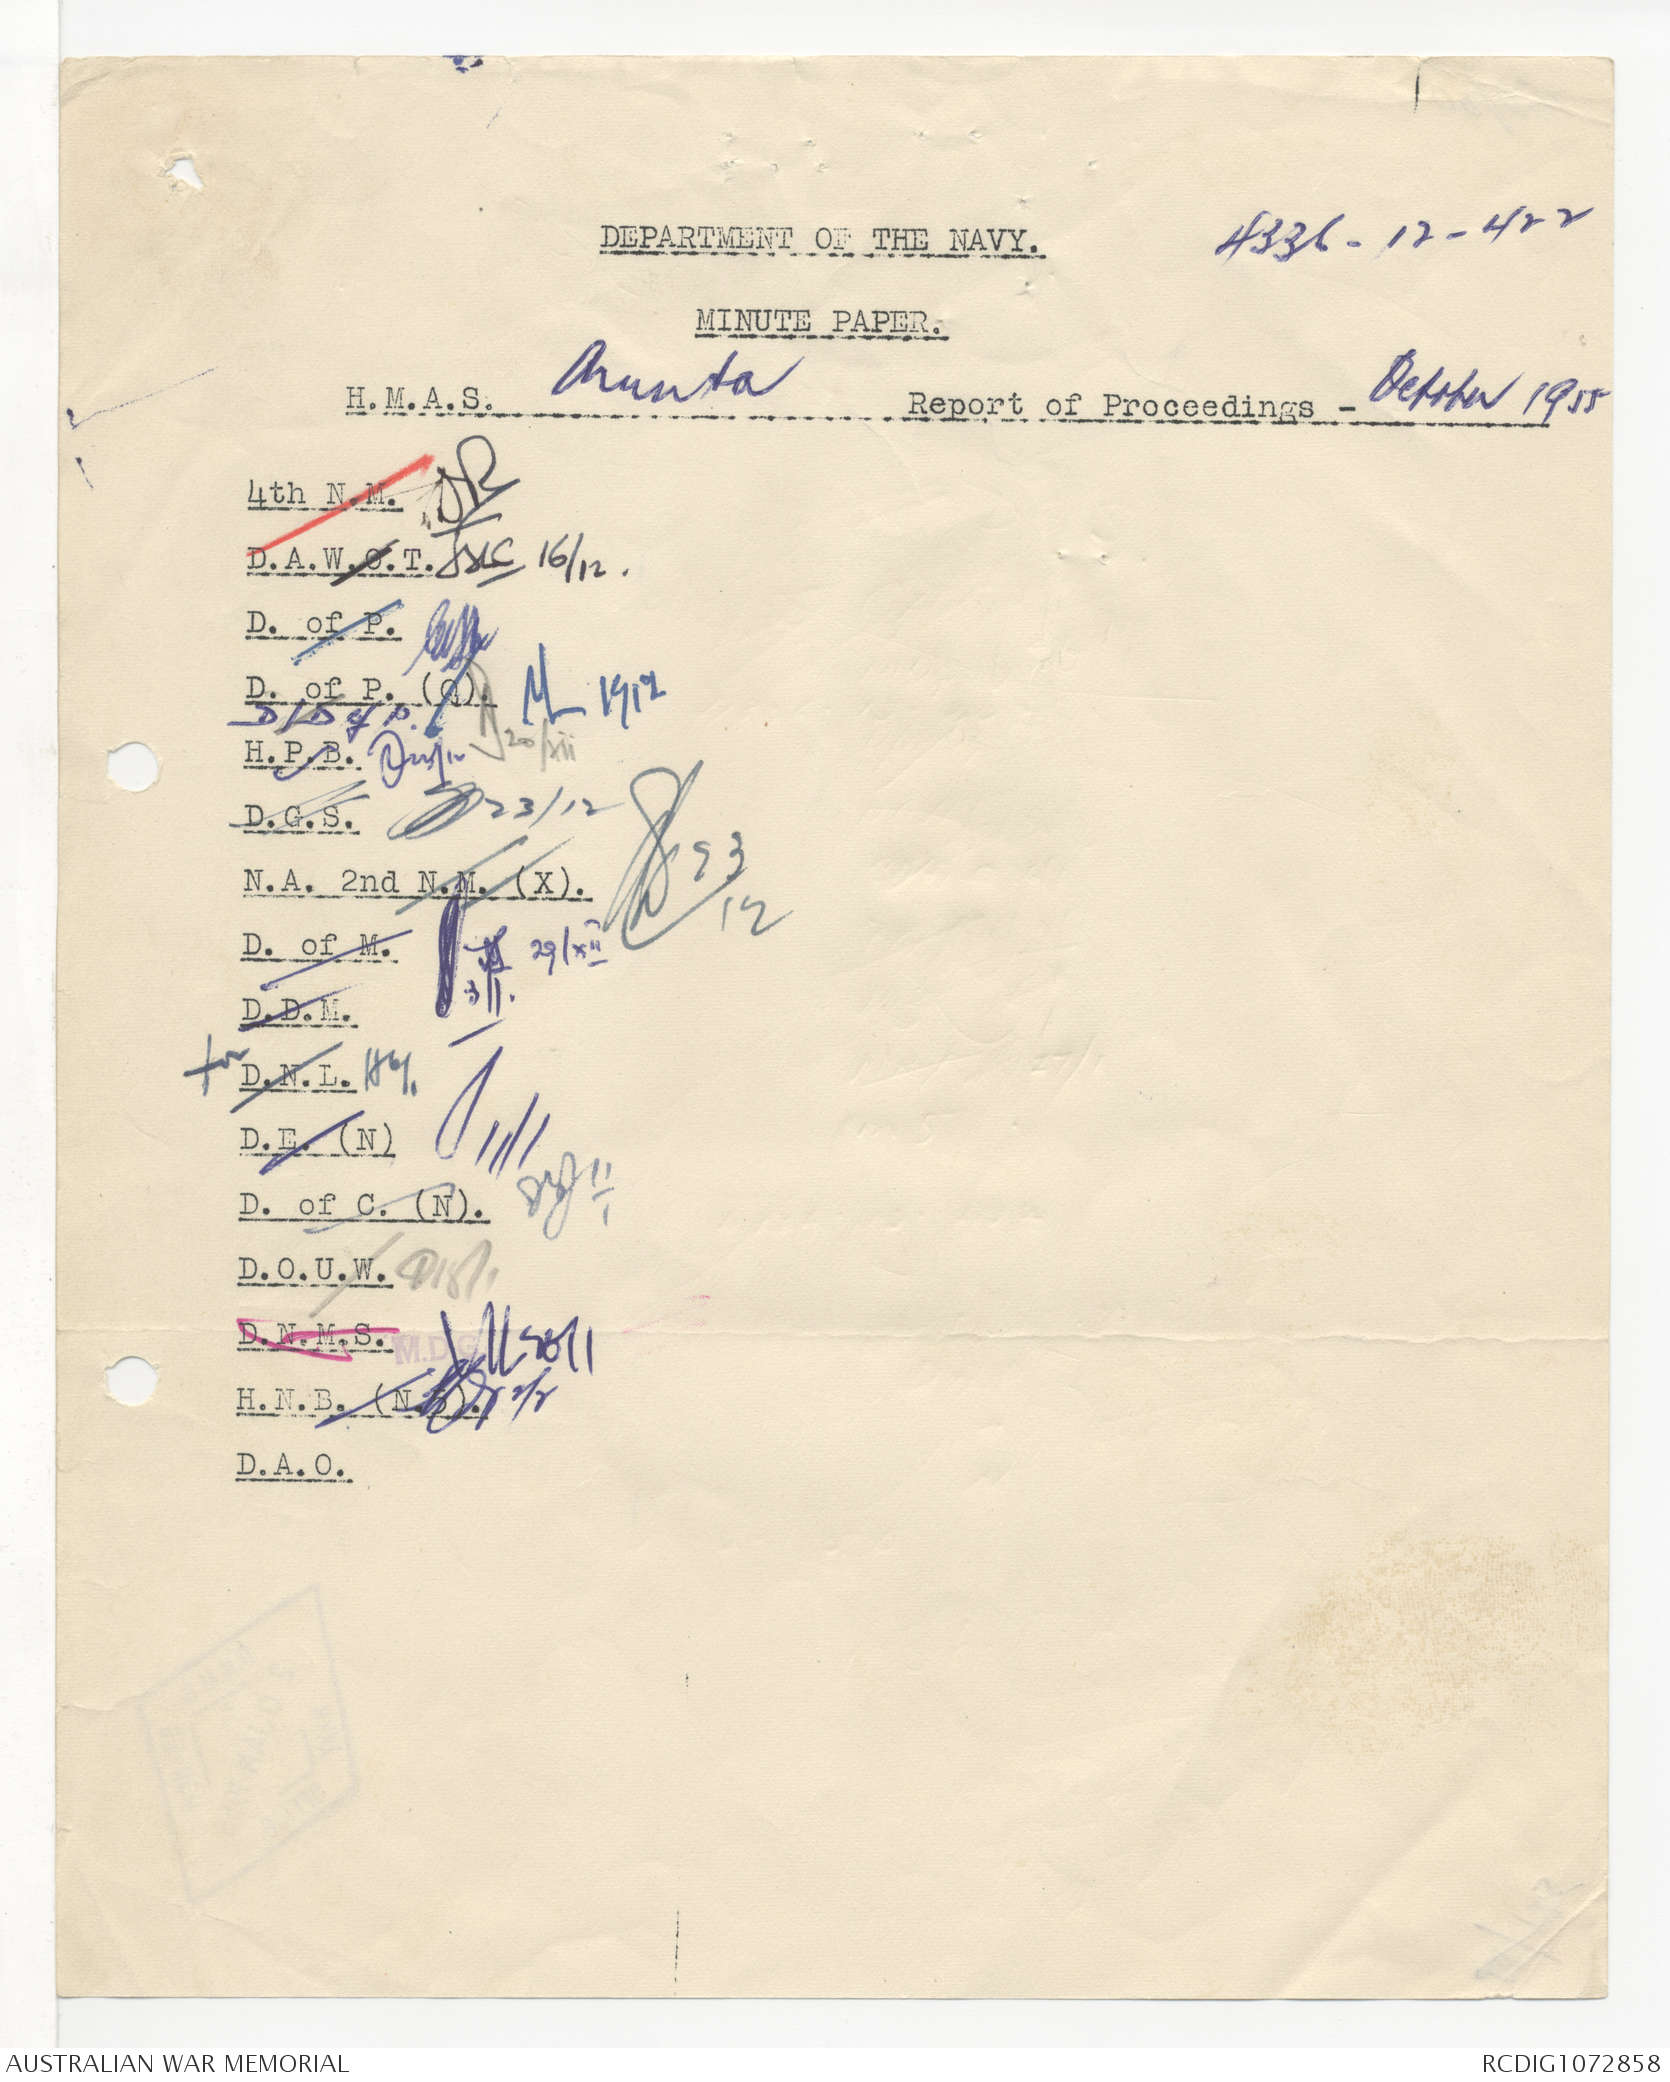 DEPARTMENT OF THE NAVY.
4336-12-422
MINUTE PAPER.
H.M.A.S. Arunta Report of Proceedings - October 1955
4th N.M.
D.A.W.O.T. 16/12.
D. of P.
D. of P. (Q). 19/12
D/D of P. 20/xii
H.P.B.
D.G.S. 23/12
N.A. 2nd N.M. (X). 23/12
D. of M. 29/xii
3/1.
D.D.M.
for D.N.L.
D.E. (N) 11/1
D. of C. (N). 11/1
D.O.U.W. 18/1
D.N.M.S. M.D.G. 28/1
H.N.B. (N.B). 2/2
D.A.O.
AUSTRALIAN WAR MEMORIAL
RCDIG1072858